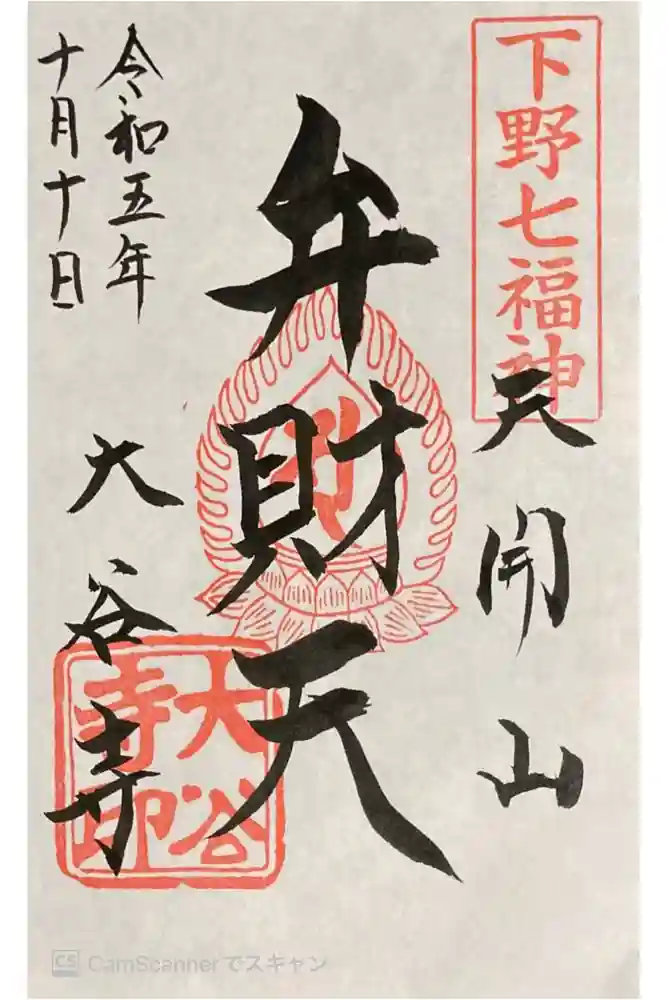 下野七福神
天開山
弁財天
令和五年
十月十日
大谷寺
大谷寺印
CS CamScannerでスキャン